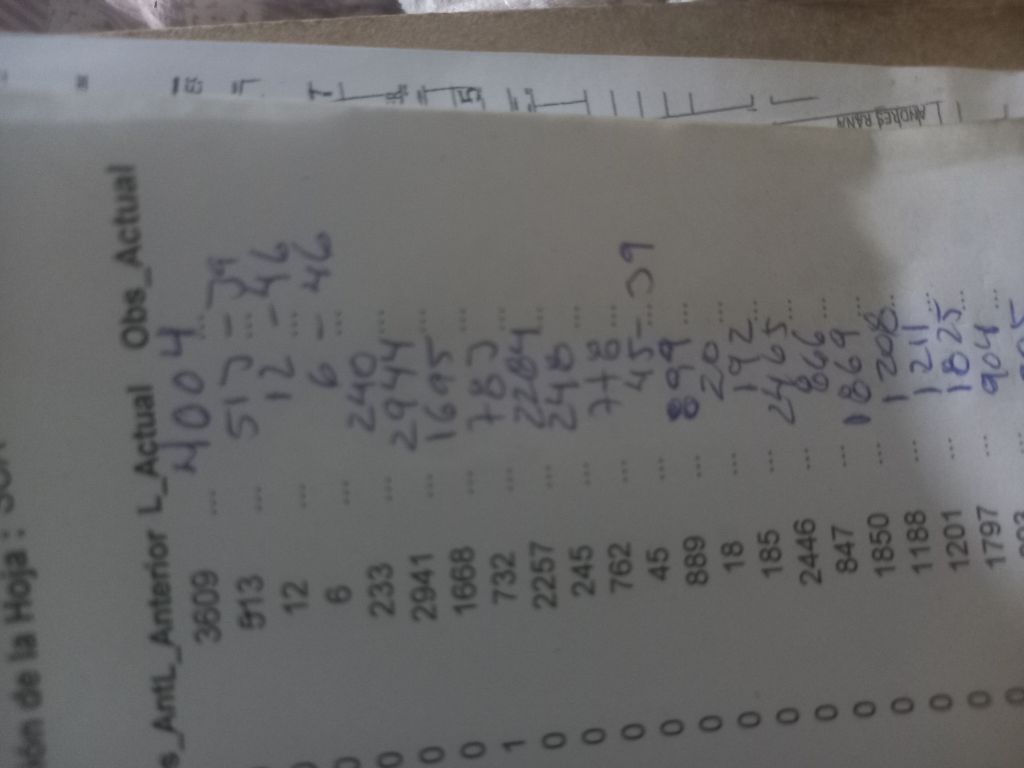 ión de la Hoja :
s_AntL_Anterior L_Actual Obs_Actual
3609 ... 4004 ...
513 ... 513 - 39
12 ... 12 - 46
6 ... 6 - 46
0 233 ... 240 ...
0 2941 ... 2944 ...
0 1668 ... 1695 ...
1 732 ... 783 ...
0 2257 ... 2284 ...
0 245 ... 248 ...
0 762 ... 778 ...
0 45 ... 45 - 39
0 889 ... 899 ...
0 18 ... 20 ...
0 185 ... 192 ...
0 2446 ... 2465 ...
0 847 ... 866 ...
0 1850 ... 1869 ...
0 1188 ... 1208 ...
0 1201 ... 1211 ...
0 1797 ... 1825 ...
904 ...
ANDRES RANA